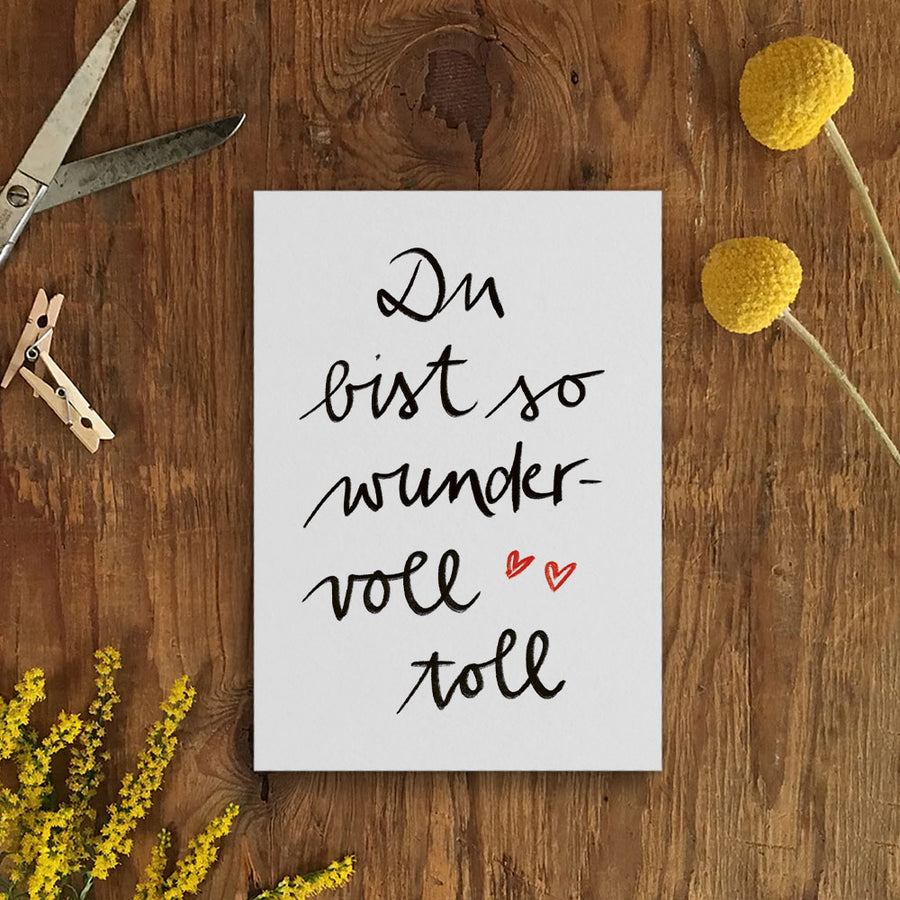 Du
bist so
wunder-
voll
toll